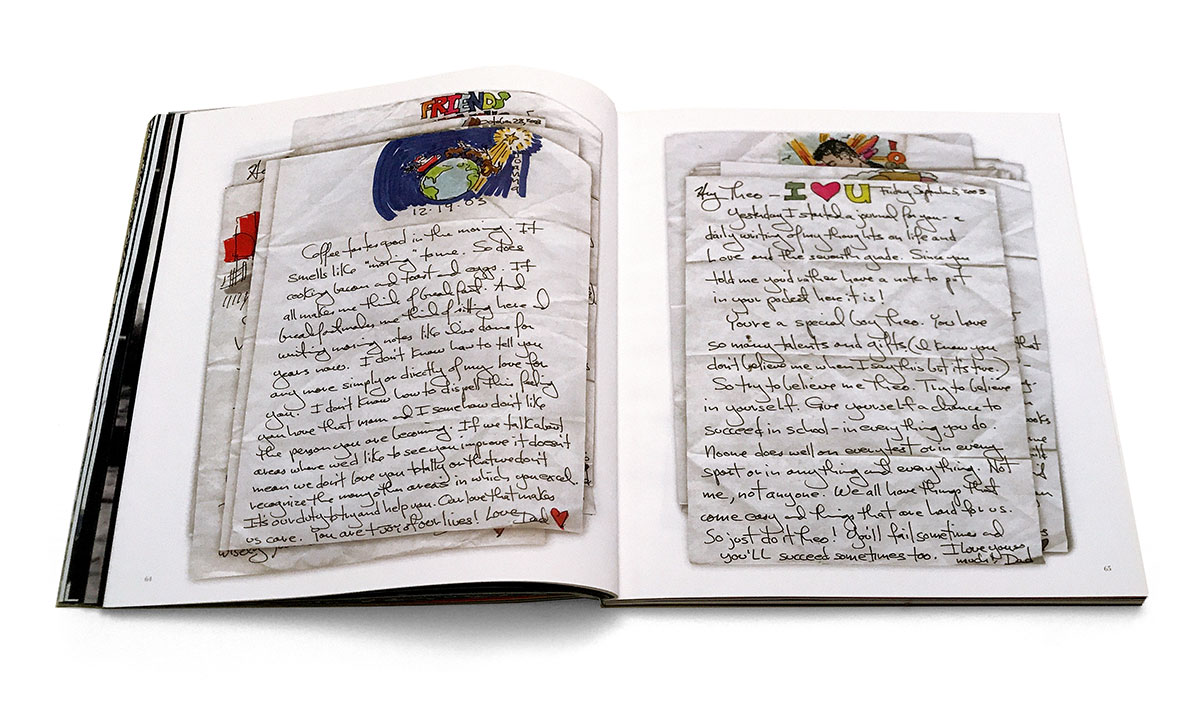 FRIENDS
12.19.03
Coffee tastes good in the morning. It
smells like "morning" to me. So does
cooking bacon and toast and eggs. It
all makes me think of breakfast. And
breakfast makes me think of sitting here and
writing morning notes like I've done for
years now. I don't know how to tell you
any more simply or directly of my love for
you. I don't know how to dispell this feeling
you have that mom and I somehow don't like
the person you are becoming. If we talk about
areas where we'd like to see you improve it doesn't
mean we don't love you totally or that we don't
recognize the many other areas in which you excel.
It's our duty to try and help you. Our love that makes
us care. You are two of our lives! Love Dad
64
Hey Theo - I ♥ U Friday, September 5, 2003
Yesterday I started a journal for you - a
daily writing of my thoughts on life and
Love and the seventh grade. Since you
told me you'd rather have a note to put
in your pocket here it is!
You're a special boy Theo. You have
so many talents and gifts (I know you
don't believe me when I say this but its true.)
So try to believe me Theo. Try to believe
in yourself. Give yourself a chance to
succeed in school - in everything you do.
No one does well on every test or in every
sport or in anything and everything. Not
me, not anyone. We all have things that
come easy and things that are hard for us.
So just do it Theo! You'll fail sometimes and
you'll succeed sometimes too. I love you so
much! Dad
65